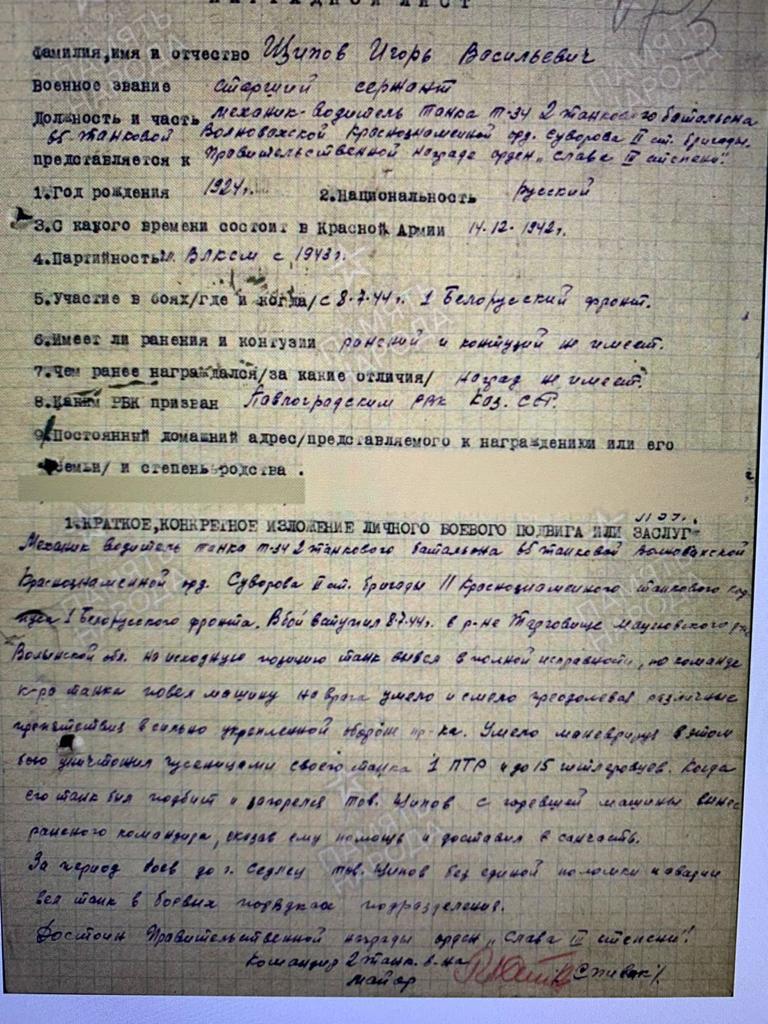 НАГРАДНОЙ ЛИСТ
Фамилия,имя и отчество Щипов Игорь Васильевич
Военное звание старший сержант
Должность и часть механик-водитель танка Т-34 2 танкового батальона
65 танковой Волновахской Краснознаменной орд. Суворова II ст. бригады.
представляется к Правительственной награде орден „Слава III степени".
1.Год рождения 1924г. 2.Национальность русский
3.С какого времени состоит в Красной Армии 14-12-1942г.
4.Партийность ВЛКСМ с 1943г.
5.Участие в боях/где и когда/ с 8-7-44г. 1 Белорусский фронт.
6.Имеет ли ранения и контузии ранений и контузий не имеет.
7.Чем ранее награждался/за какие отличия/ наград не имеет.
8.Каким РВК призван Павлоградским РВК Каз. ССР.
9.Постоянный домашний адрес/представляемого к награждению или его
семьи/ и степень родства .
1.КРАТКОЕ,КОНКРЕТНОЕ ИЗЛОЖЕНИЕ ЛИЧНОГО БОЕВОГО ПОДВИГА ИЛИ ЗАСЛУГ
Механик водитель танка Т-34 2 танкового батальона 65 танковой Волновахской
Краснознаменной орд. Суворова II ст. бригады 11 Краснознаменного танкового кор-
пуса 1 Белорусского фронта. В бой вступил 8-7-44г. в р-не Торговище Мацеювского
Волынской обл. на исходную позицию танк вывел в полной исправности, по команде
к-ра танка повел машину на врага умело и смело преодолевая различные
препятствия в сильно укрепленной обороне пр-ка. Умело маневрируя в этом
бою уничтожил гусеницами своего танка 1 ПТР и до 15 гитлеровцев. Когда
его танк был подбит и загорелся тов. Щипов с горевшей машины вынес
раненого командира, оказав ему помощь и доставил в санчасть.
За период боев до г. Седлец тов. Щипов без единой поломки и аварии
вел танк в боевых порядках подразделения.
Достоин Правительственной награды орден „Слава III степени".
Командир 2 танк. б-на
майор /Спивак/
ПАМЯТЬ НАРОДА